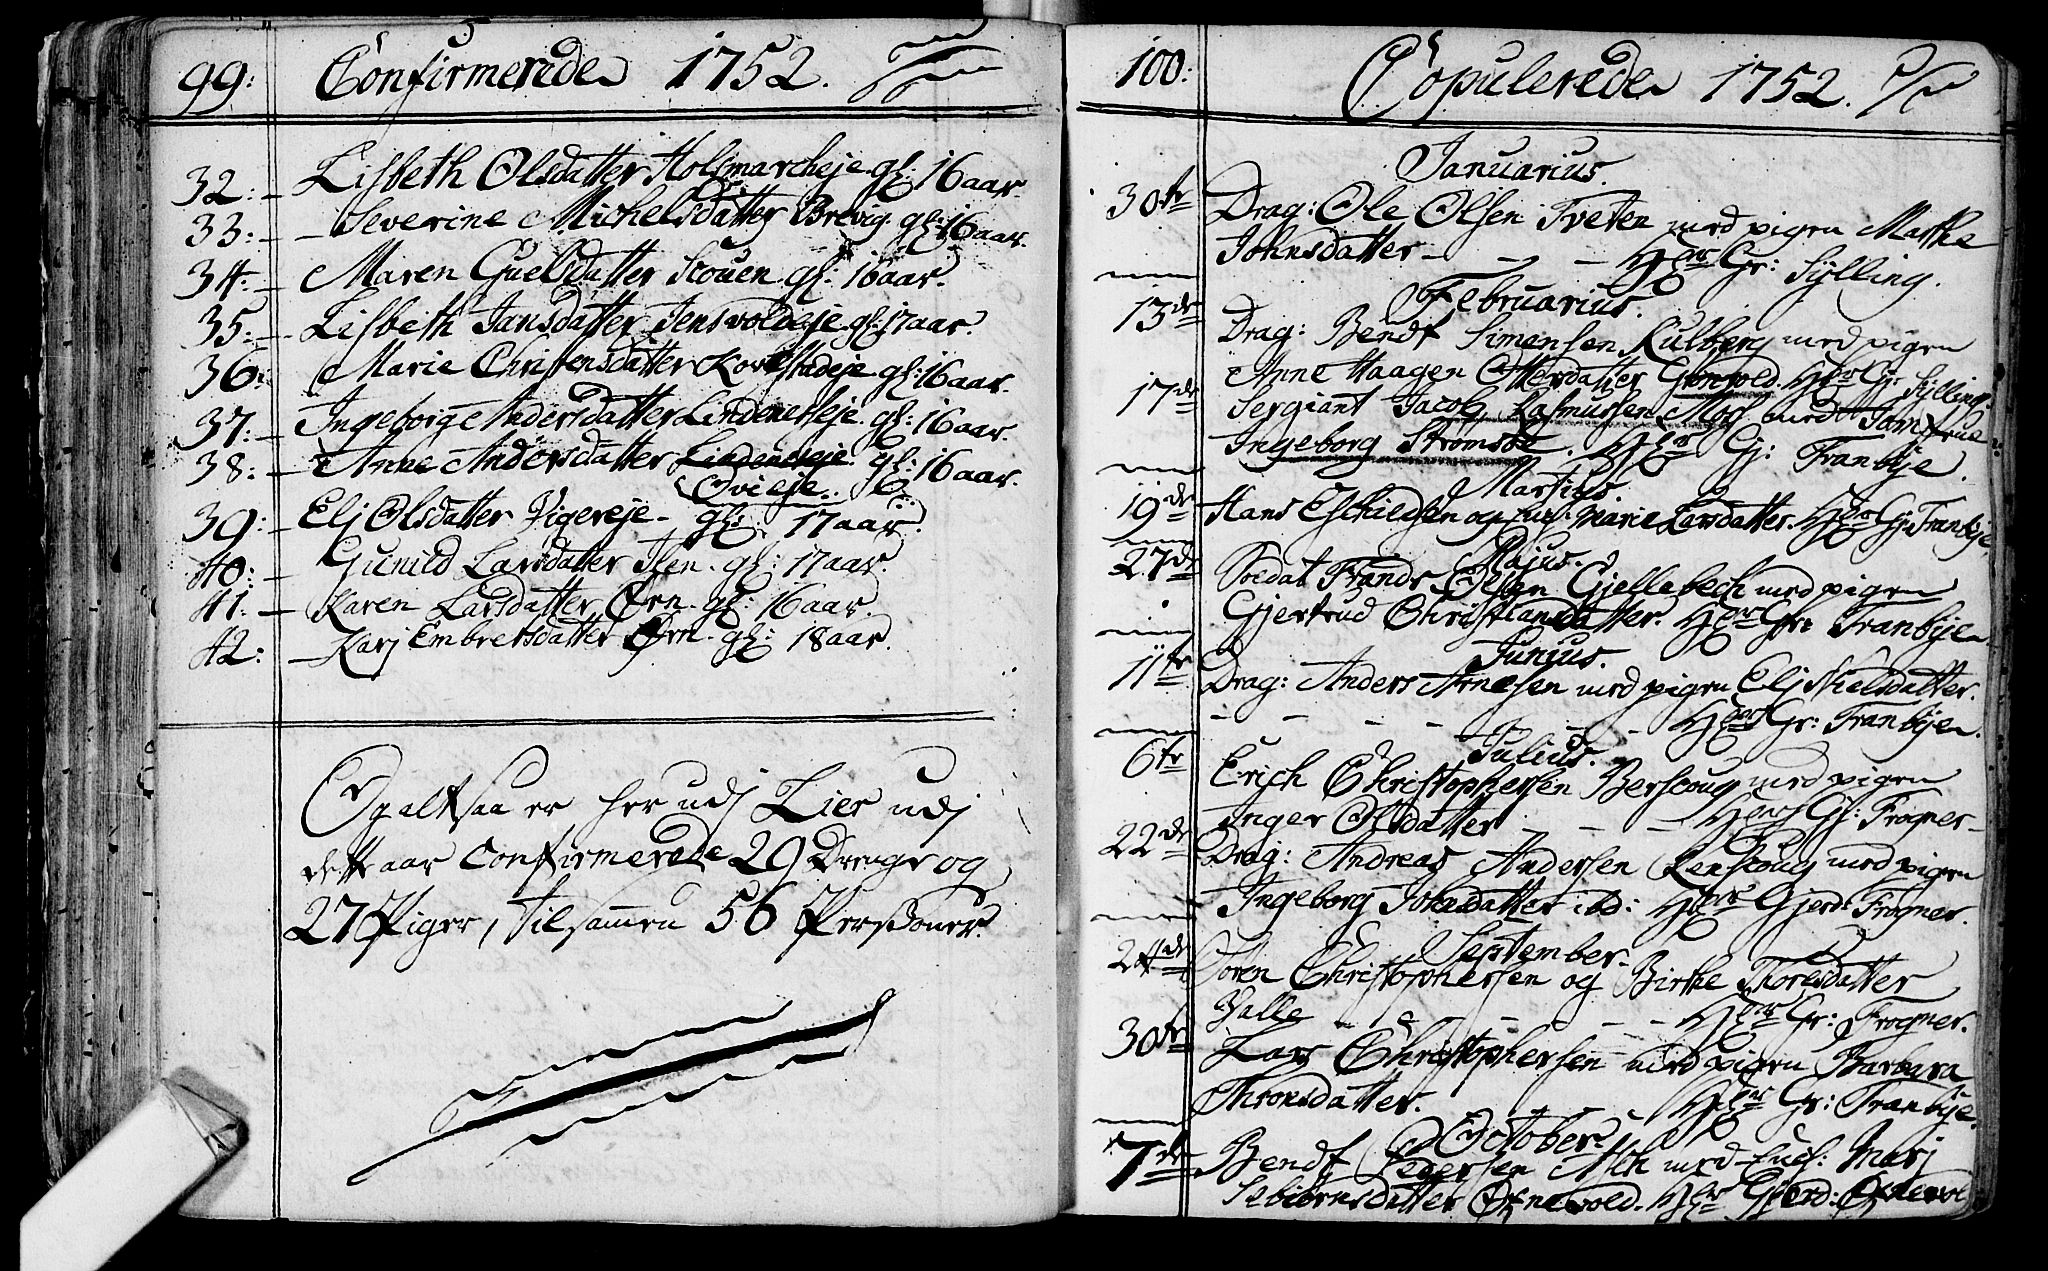 99: Confirmerede 1752.
32: Lisbeth Olsdatter Holsmarcheje gl: 16 aar.
33: Severine Michelsdatter Brevig. gl: 16 aar.
34: Maren Guelsdatter Scouen gl: 16 aar.
35: Lisbeth Jansdatter Jensvoldeje gl: 17 aar.
36: Marie Christensdatter gl: 16 aar.
37: Ingeborg Andersdatter Lindeneseje. gl: 16 aar.
38: Anne Andersdatter Lindeneseje gl: 16 aar.
Ovieje.
39: Elj Olsdatter Vigereje gl: 17 aar.
40: Gunild Larsdatter Ilen. gl: 17 aar.
41: Karen Larsdatter Ørn. gl: 16 aar.
42: Karj Embretsdatter Ørn. gl: 18 aar.
Og altsaa er her udj Lier udj
dette aar Confirmerede 29 Drenge og
27 Piger, tilsammen 56 Persohner.
100: Copulerede 1752.
Januarius.
30te Drag: Ole Olsen Tveten med pigen Marthe
Johnsdatter - - - - Hver Gr: Sylling.
Februarius.
13de Drag: Bendt Simensen Kulberg med pigen
Anne Haagen Ottersdatter Grønvold. Hver Gr Sylling.
17de Sergiant Jacob Rasmussen Moss med Jomfrue
Ingeborg Strømsøe. Hver Gj: Franbje.
Martius.
19de Hans Eschildsen og Enche: Marie Larsdatter. Hver Gr Franbje
Majus.
27de Soldat Frands Olsen Gjellebech med pigen
Gjertrud Christiansdatter. Hver Gr: Franbjen.
Junius.
11te Drag: Anders Arnesen med pigen Elj Nielsdatter.
- - - - - - Hver Gr: Franbjen.
Julius.
6te Erich Christophersen Berscoug med pigen
Inger Olsdatter - - - Hver Gj: Frogner-
22de Drag: Andreas Andersen Renscoug med pigen
Ingeborg Johnsdatter ibd: Hver Gjerd: Frogner.
September.
24de Søren Christophersen og Birthe Thoresdatter
Valle - - - - - - Hver Gr: Frogner.
30te Lars Christophersen med pigen Barbara
Thronsdatter. Hver Gr: Franbje.
October.
7de Bendt Pedersen Asch med Enche: Marj
Sebiørnsdatter Ørnevold. Hver Gjerd: